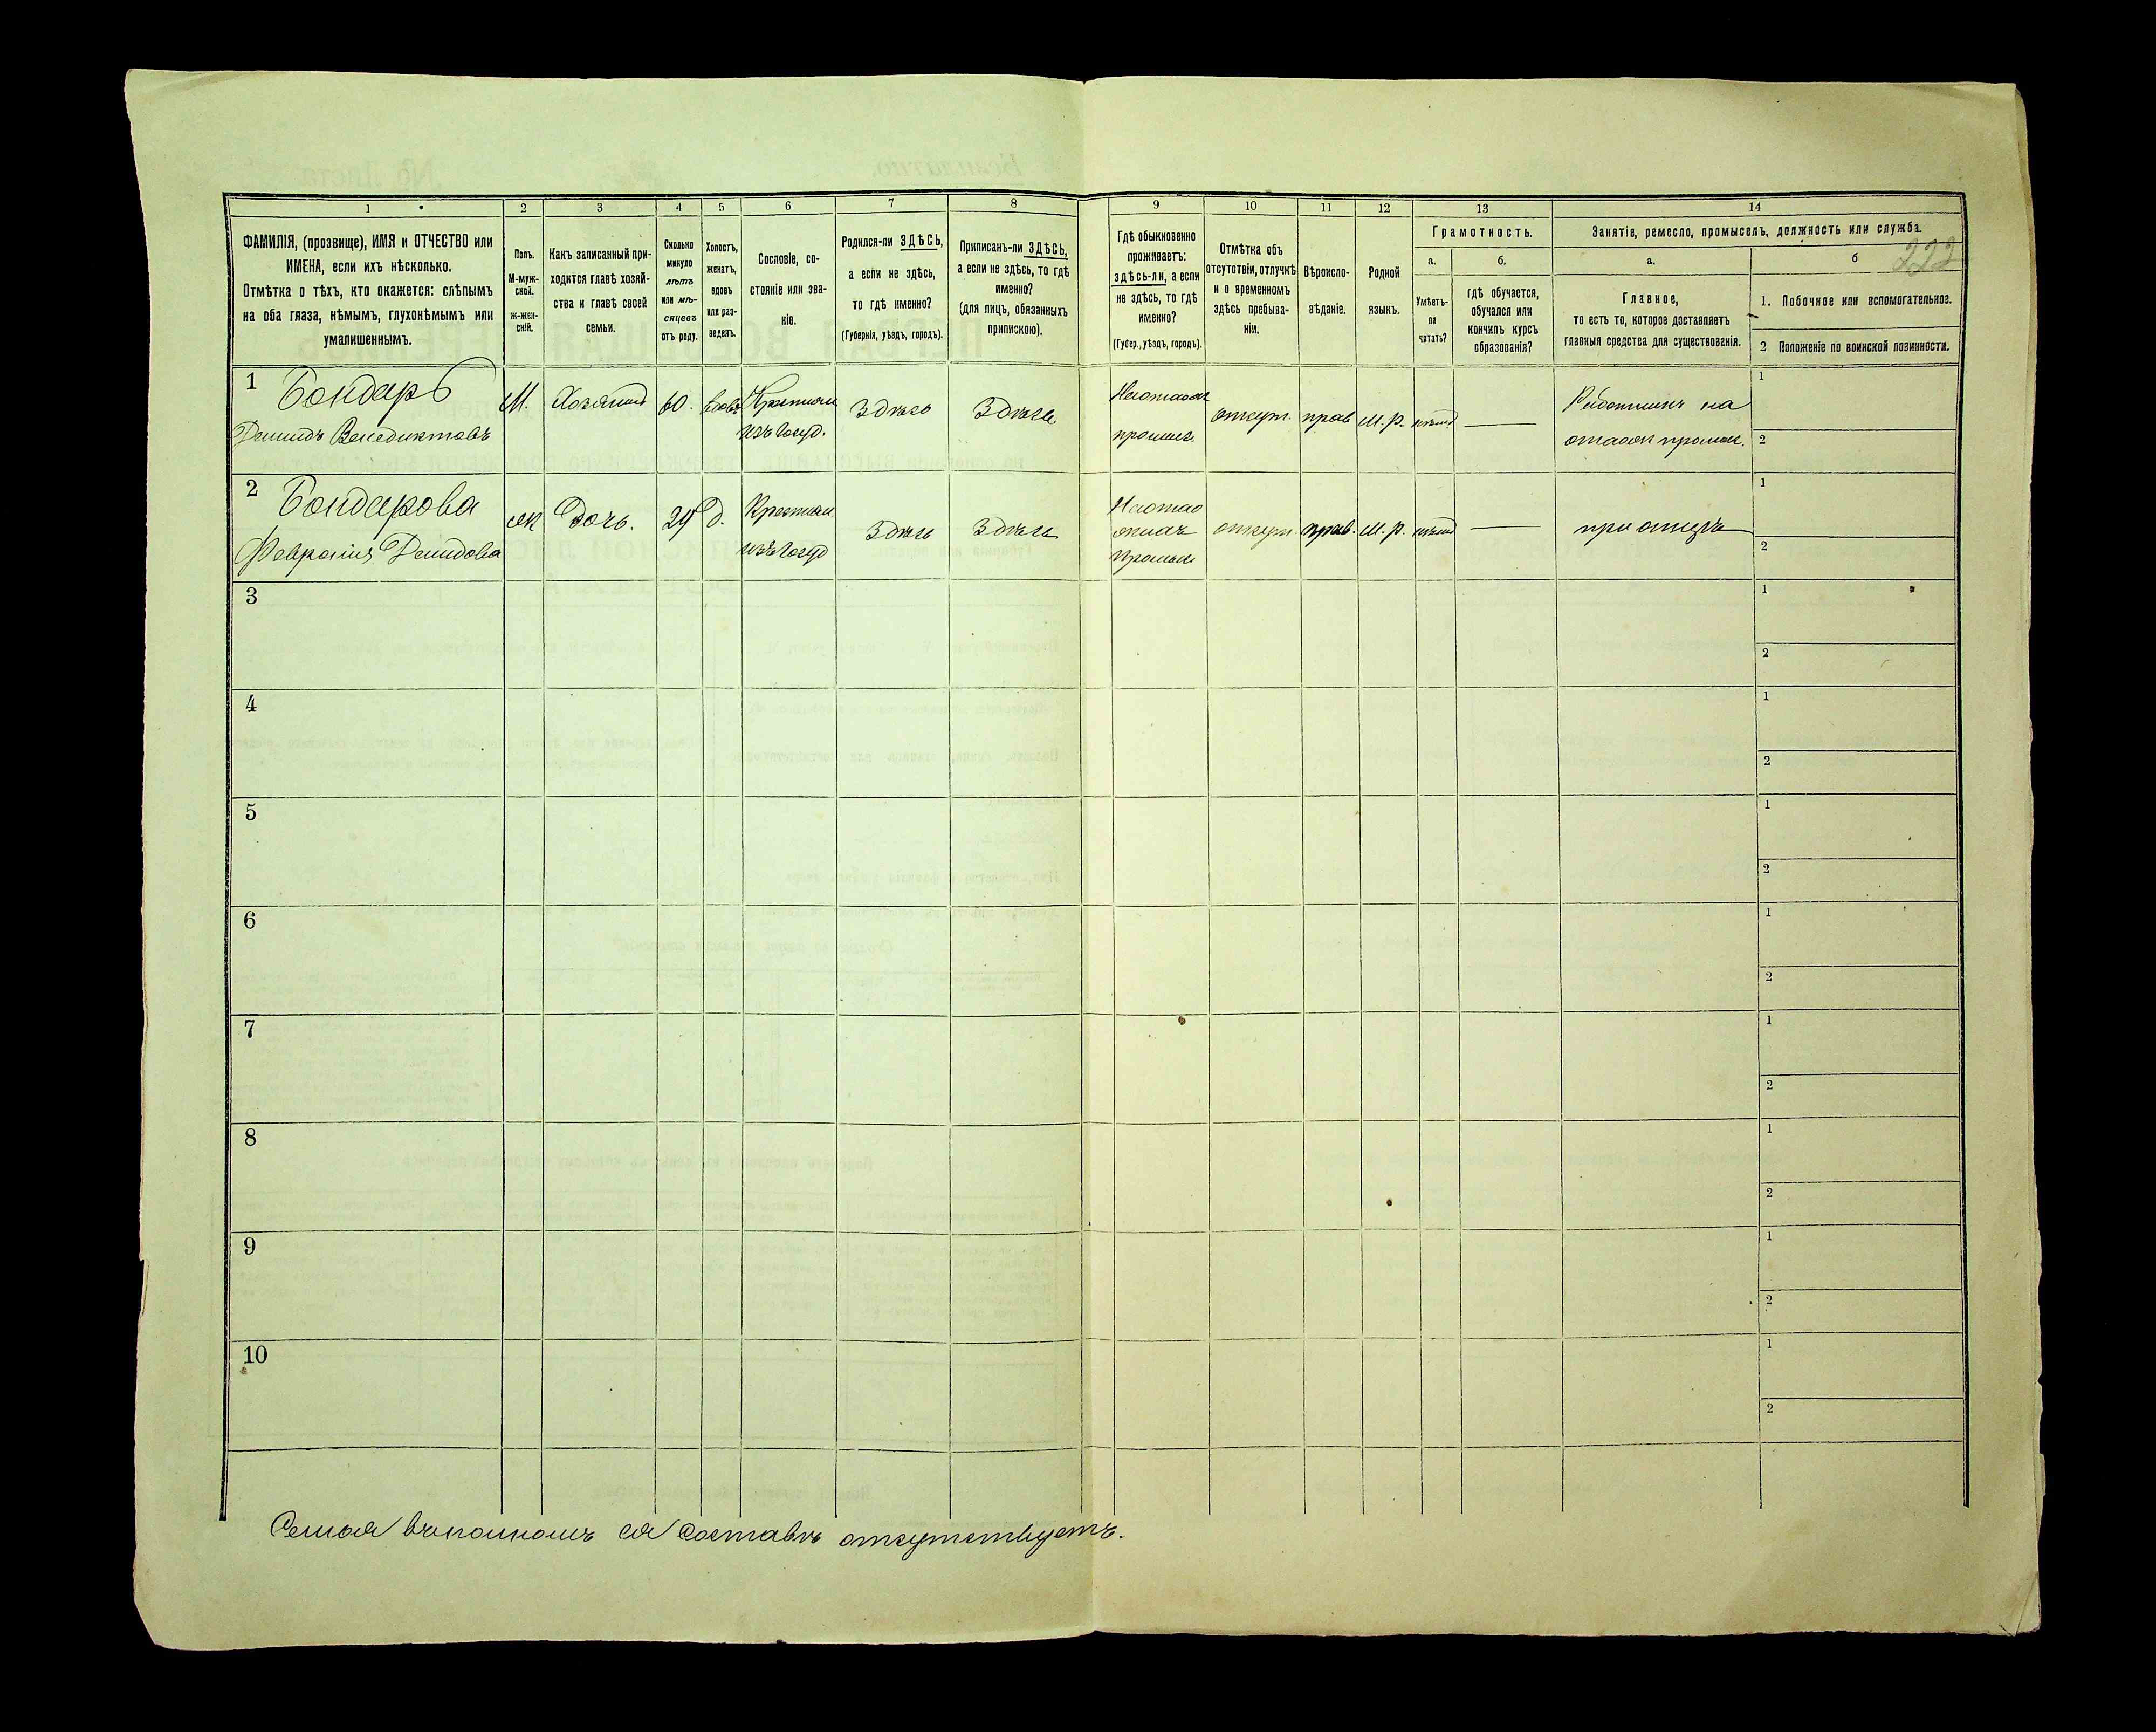 223
1 2 3 4 5 6 7 8 9 10 11 12 13 14
ФАМИЛІЯ, (прозвище), ИМЯ и ОТЧЕСТВО или
ИМЕНА, если ихъ нѣсколько.
Отмѣтка о тѣхъ, кто окажется: слѣпымъ
на оба глаза, нѣмымъ, глухонѣмымъ или
умалишеннымъ.
Полъ.
М-муж-
ской.
ж-жен-
скій.
Какъ записанный при-
ходится главѣ хозяй-
ства и главѣ своей
семьи.
Сколько
минуло
лѣтъ
или мѣ-
сяцевъ
отъ роду.
Холостъ,
женатъ,
вдовъ
или раз-
веденъ.
Сословіе, со-
стояніе или зва-
ніе.
Родился-ли ЗДѢСЬ,
а если не здѣсь,
то гдѣ именно?
(Губернія, уѣздъ, городъ).
Приписанъ-ли ЗДѢСЬ,
а если не здѣсь, то гдѣ
именно?
(для лицъ, обязанныхъ
припискою).
Гдѣ обыкновенно
проживаетъ:
здѣсь-ли, а если
не здѣсь, то гдѣ
именно?
(Губер., уѣздъ, городъ).
Отмѣтка объ
отсутствіи, отлучкѣ
и о временномъ
здѣсь пребыва-
ніи.
Вѣроиспо-
вѣданіе.
Родной
языкъ.
Грамотность.
а.
Умѣетъ-
ли
читать?
б.
гдѣ обучается,
обучался или
кончилъ курсъ
образованія?
Занятіе, ремесло, промыселъ, должность или служба.
а.
Главное,
то есть то, которое доставляетъ
главныя средства для существованія.
б
1. Побочное или вспомогательное.
2 Положеніе по воинской повинности.
1 Бондарь
Демидъ Венедиктовъ
М.
Хозяинъ
60.
вдовъ
Крестьян
изъ госуд.
Здѣсь
Здѣсь
отсут.
прав
М.р.
нѣтъ
—
Работникъ на
1
2
2 Бондарова
Февронія Демидова
ж
Дочь.
29
Д.
Крестьян
изъ госуд
Здѣсь
Здѣсь
отсут.
прав.
М.р.
нѣтъ
—
при отцѣ
1
2
3
1
2
4
1
2
5
1
2
6
1
2
7
1
2
8
1
2
9
1
2
10
1
2
Семья въ полномъ ея составѣ отсутствуетъ.